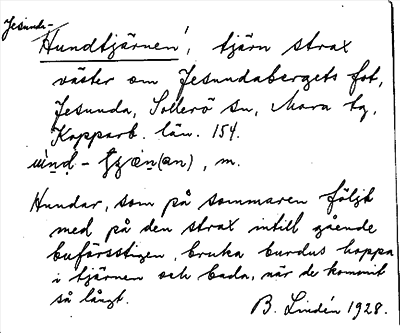 Jesunda-
Hundtjärnen, tjärn strax
väster om Jesundabergets fot,
Jesunda, Sollerö sn, Mora tg,
Kopparb. län. 154.
m.
Hundar, som på sommaren följt
med på den strax intill gående
buförsstigen, bruka burdus hoppa
i tjärnen och bada, när de kommit
så långt.
B. Lindén 1928.